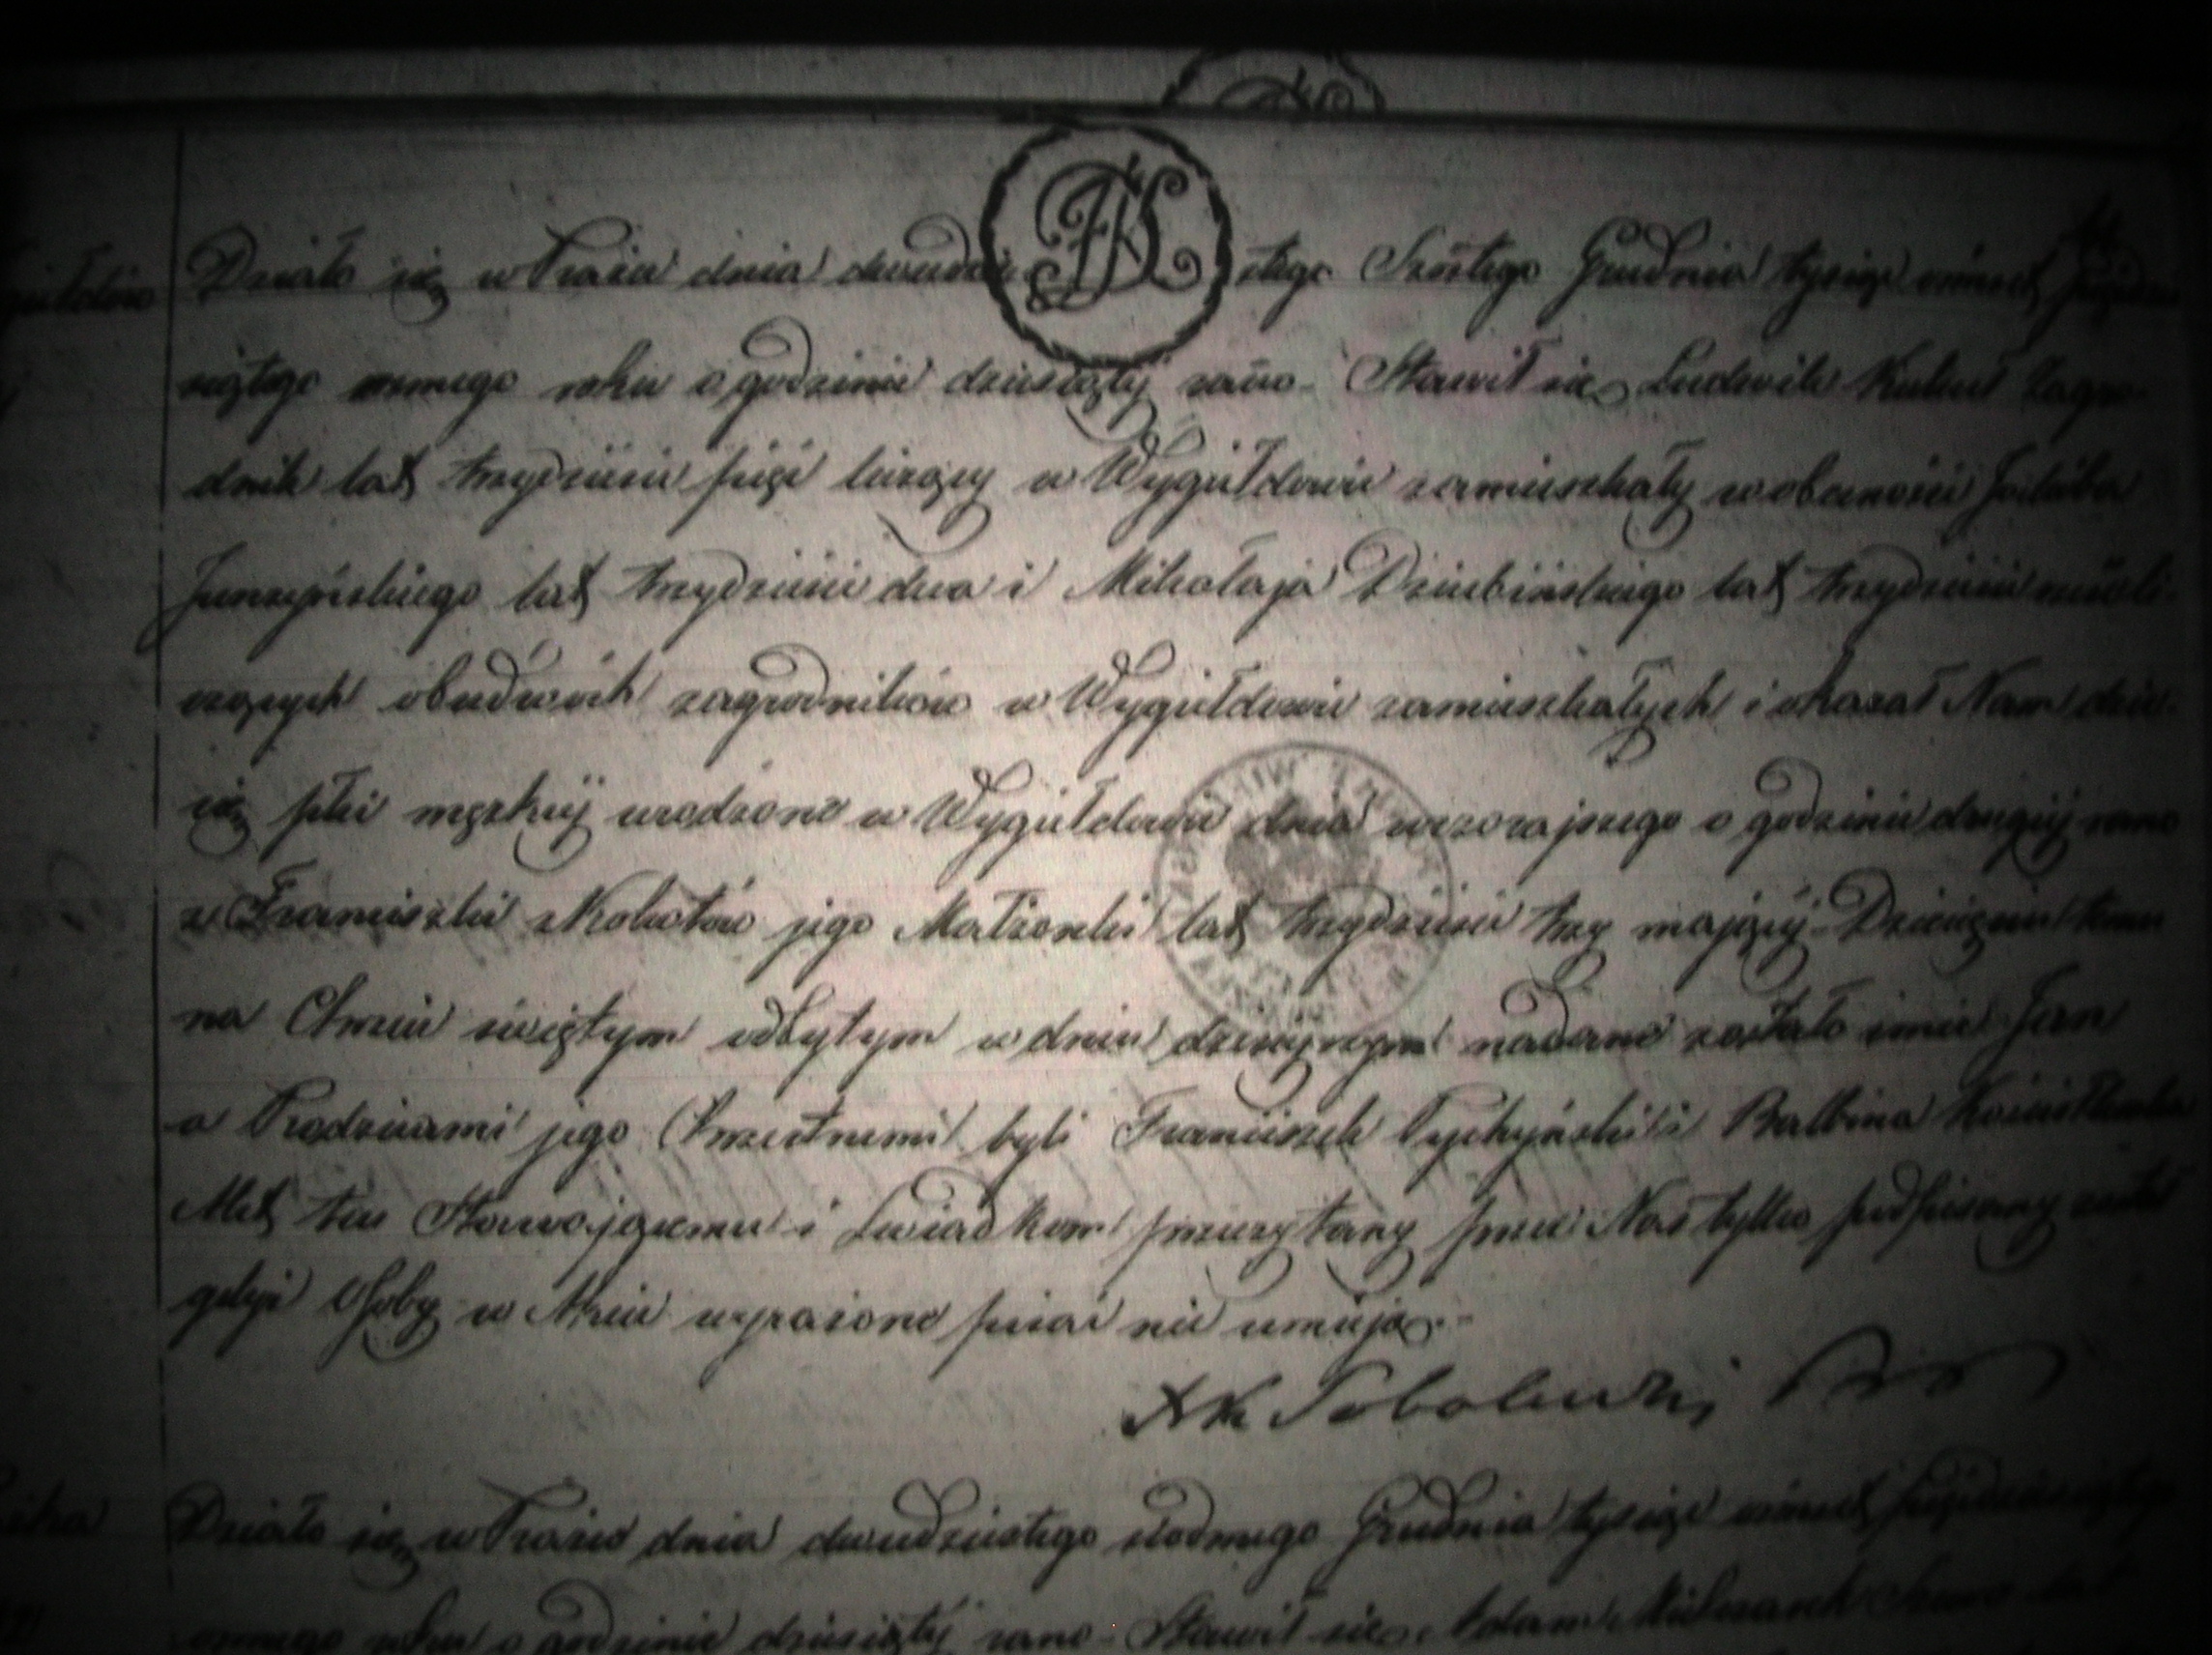 Działo się w Łasku dnia dwudziestego Szóstego Grudnia tysiąc ośmset pięćdzie
siątego osmego roku o godzinie dziesiątej rano. Stawił się Ludwik zagro-
dnik lat trzydzieści pięć liczący w Wygiełdowie zamieszkały w obecności Jakóba
lat trzydzieści dwa i Mikołaja Dziubińskiego lat trzydzieści
czących obudwóch zagrodników w Wygiełdowie zamieszkałych i okazał Nam dzie-
cię płci męzkiej urodzone w Wygiełdowie dnia wczorajszego o godzinie drugiej rano
z Franciszki jego Małżonki lat trzydzieści trzy mającej. Dziecięciu temu
na Chrzcie świętym odbytym w dniu dzisiejszym nadane zostało imie Jan
a Rodzicami jego Chrzestnemi byli Franciszek i Balbina
Akt ten Stawającemu i Świadkom przeczytany przez Nas tylko podpisany został
gdyż Osoby w Akcie wyrażone pisać nie umieją.
Sobolewski
Działo się w dnia dwudziestego siódmego Grudnia tysiąc ośmset pięćdziesiątego
osmego roku o godzinie dziesiątej rano. Stawił się Adam lat